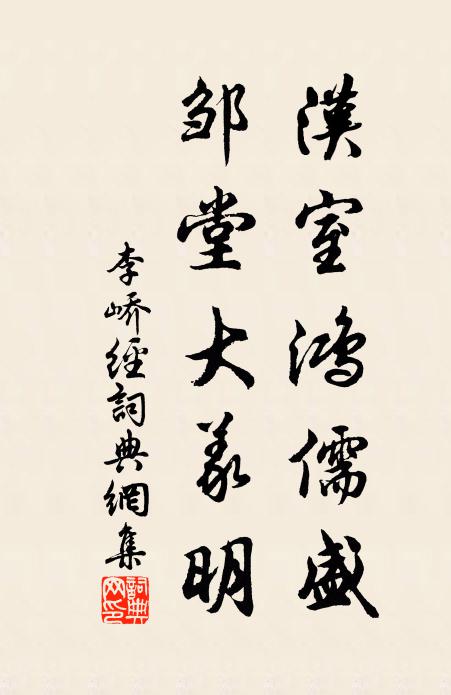 漢室鴻儒盛
邹堂大義明
李嶠經詞典網集
詞典网印